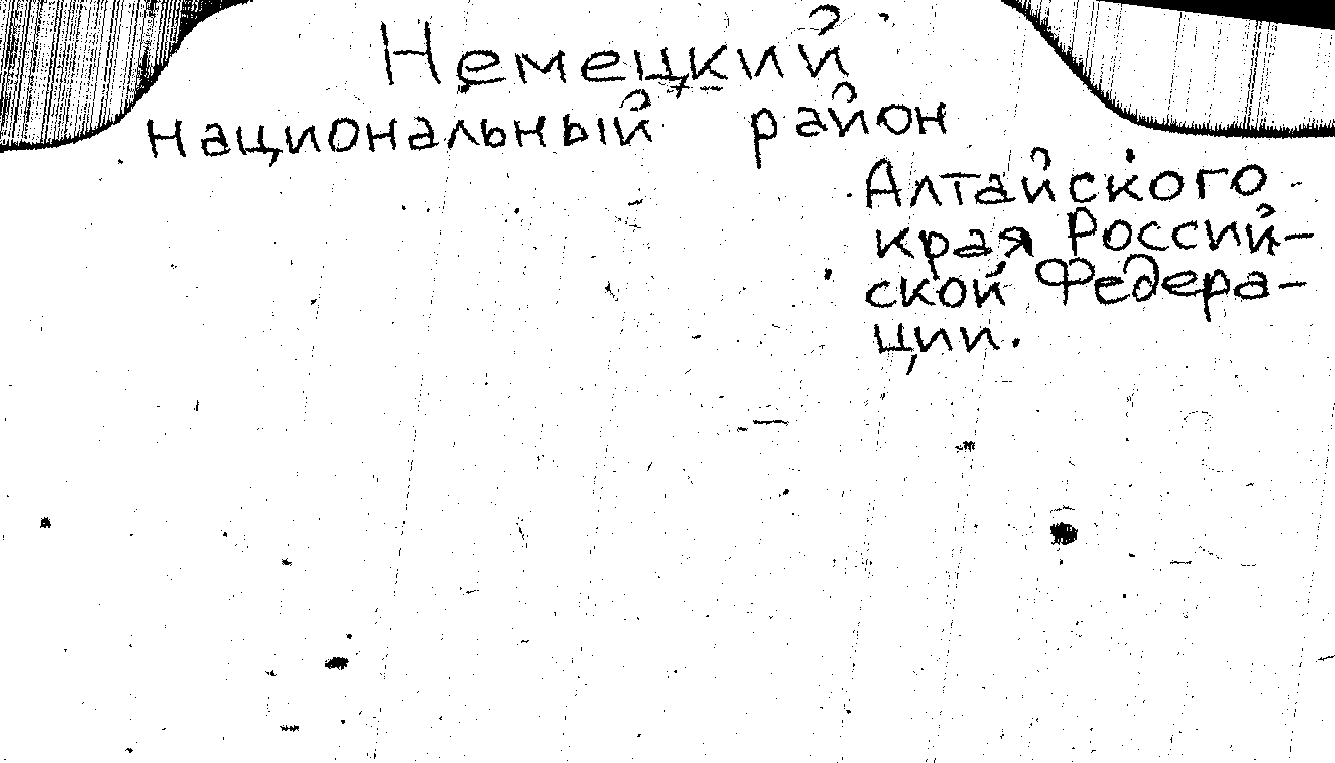 Немецкий
национальный район
Алтайского
края Россий-
ской Федера-
ции.